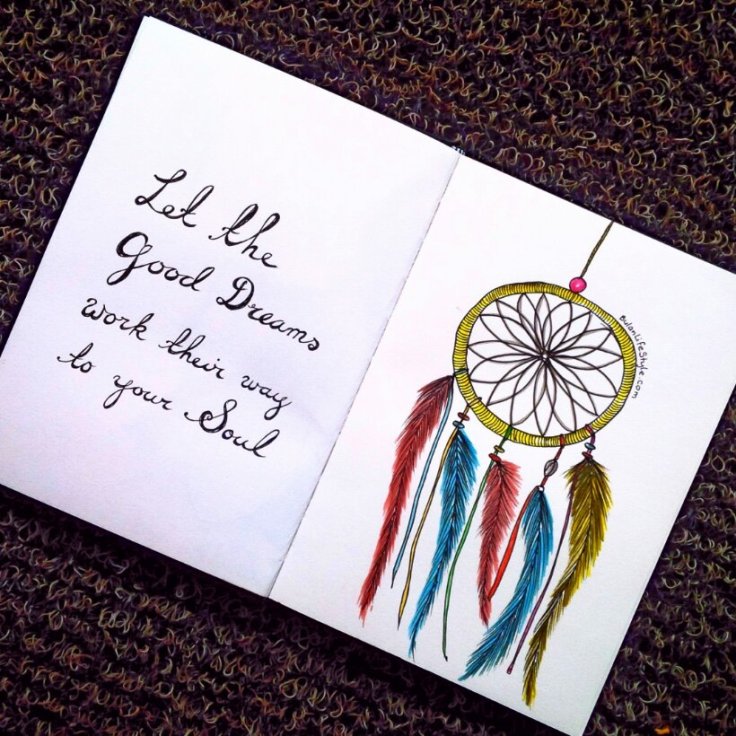 Let the
Good Dreams
work their way
to your Soul
BulanLifeStyle.com